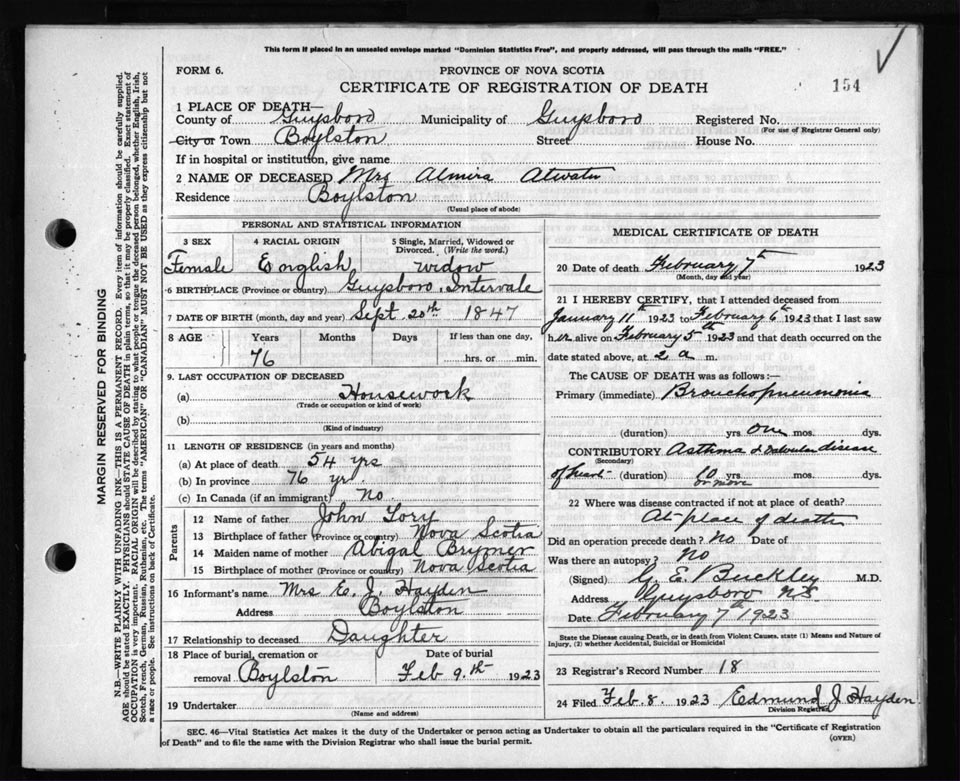 This form if placed in an unsealed envelope marked "Dominion Statistics Free", and properly addressed, will pass through the mails "FREE."
FORM 6.
PROVINCE OF NOVA SCOTIA
CERTIFICATE OF REGISTRATION OF DEATH
154
1 PLACE OF DEATH—
County of Guysboro Municipality of Guysboro Registered No.
(For use of Registrar General only)
City or Town Boylston Street House No.
If in hospital or institution, give name
2 NAME OF DECEASED Mrs Almira Atwater
Residence Boylston
(Usual place of abode)
PERSONAL AND STATISTICAL INFORMATION
3 SEX
Female
4 RACIAL ORIGIN
English
5 Single, Married, Widowed or Divorced. (Write the word.)
widow
6 BIRTHPLACE (Province or country) Guysboro, Intervale
7 DATE OF BIRTH (month, day and year) Sept. 20th 1847
8 AGE Years Months Days If less than one day,
76 hrs. or min.
9. LAST OCCUPATION OF DECEASED
(a) Housework
(Trade or occupation or kind of work)
(b)
(Kind of industry)
11 LENGTH OF RESIDENCE (in years and months)
(a) At place of death 54 yrs
(b) In province 76 yrs.
(c) In Canada (if an immigrant) No
Parents
12 Name of father John Tory
13 Birthplace of father (Province or country) Nova Scotia
14 Maiden name of mother Abigal Brymer
15 Birthplace of mother (Province or country) Nova Scotia
16 Informant's name Mrs E. J. Hayden
Address Boylston
17 Relationship to deceased Daughter
18 Place of burial, cremation or removal Boylston
Date of burial
Feb 9.th 1923
19 Undertaker
(Name and address)
MEDICAL CERTIFICATE OF DEATH
20 Date of death February 7th 1923
(Month, day and year)
21 I HEREBY CERTIFY, that I attended deceased from
January 11th 1923 to February 6th 1923 that I last saw
her alive on February 5th 1923 and that death occurred on the
date stated above, at 2 a m.
The CAUSE OF DEATH was as follows:—
Primary (immediate) Bronchopneumonia
(duration) yrs. one mos. dys.
CONTRIBUTORY Asthma & Valvular disease
(Secondary)
of heart (duration) 10 yrs. mos. dys.
or more
22 Where was disease contracted if not at place of death?
At place of death
Did an operation precede death? No Date of
Was there an autopsy? No
(Signed) G. E. Buckley M.D.
Address Guysboro N.S.
Date February 7th 1923
State the Disease causing Death, or in death from Violent Causes, state (1) Means and Nature of Injury, (2) whether Accidental, Suicidal or Homicidal
23 Registrar's Record Number 18
24 Filed Feb. 8. 1923 Edmund J Hayden
Division Registrar
SEC. 46—Vital Statistics Act makes it the duty of the Undertaker or person acting as Undertaker to obtain all the particulars required in the "Certificate of Registration
of Death" and to file the same with the Division Registrar who shall issue the burial permit.
(OVER)
MARGIN RESERVED FOR BINDING
N.B.—WRITE PLAINLY WITH UNFADING INK—THIS IS A PERMANENT RECORD. Every item of information should be carefully supplied.
AGE should be stated EXACTLY. PHYSICIANS should STATE CAUSE OF DEATH in plain terms, so that it may be properly classified. Exact statement of
OCCUPATION is very important. RACIAL ORIGIN will be described by stating to what people or tongue the deceased person belonged, whether English, Irish,
Scotch, French, German, Russian, Ruthenian, etc. The terms "AMERICAN" OR "CANADIAN" MUST NOT BE USED as they express citizenship but not
a race or people. See instructions on back of Certificate.